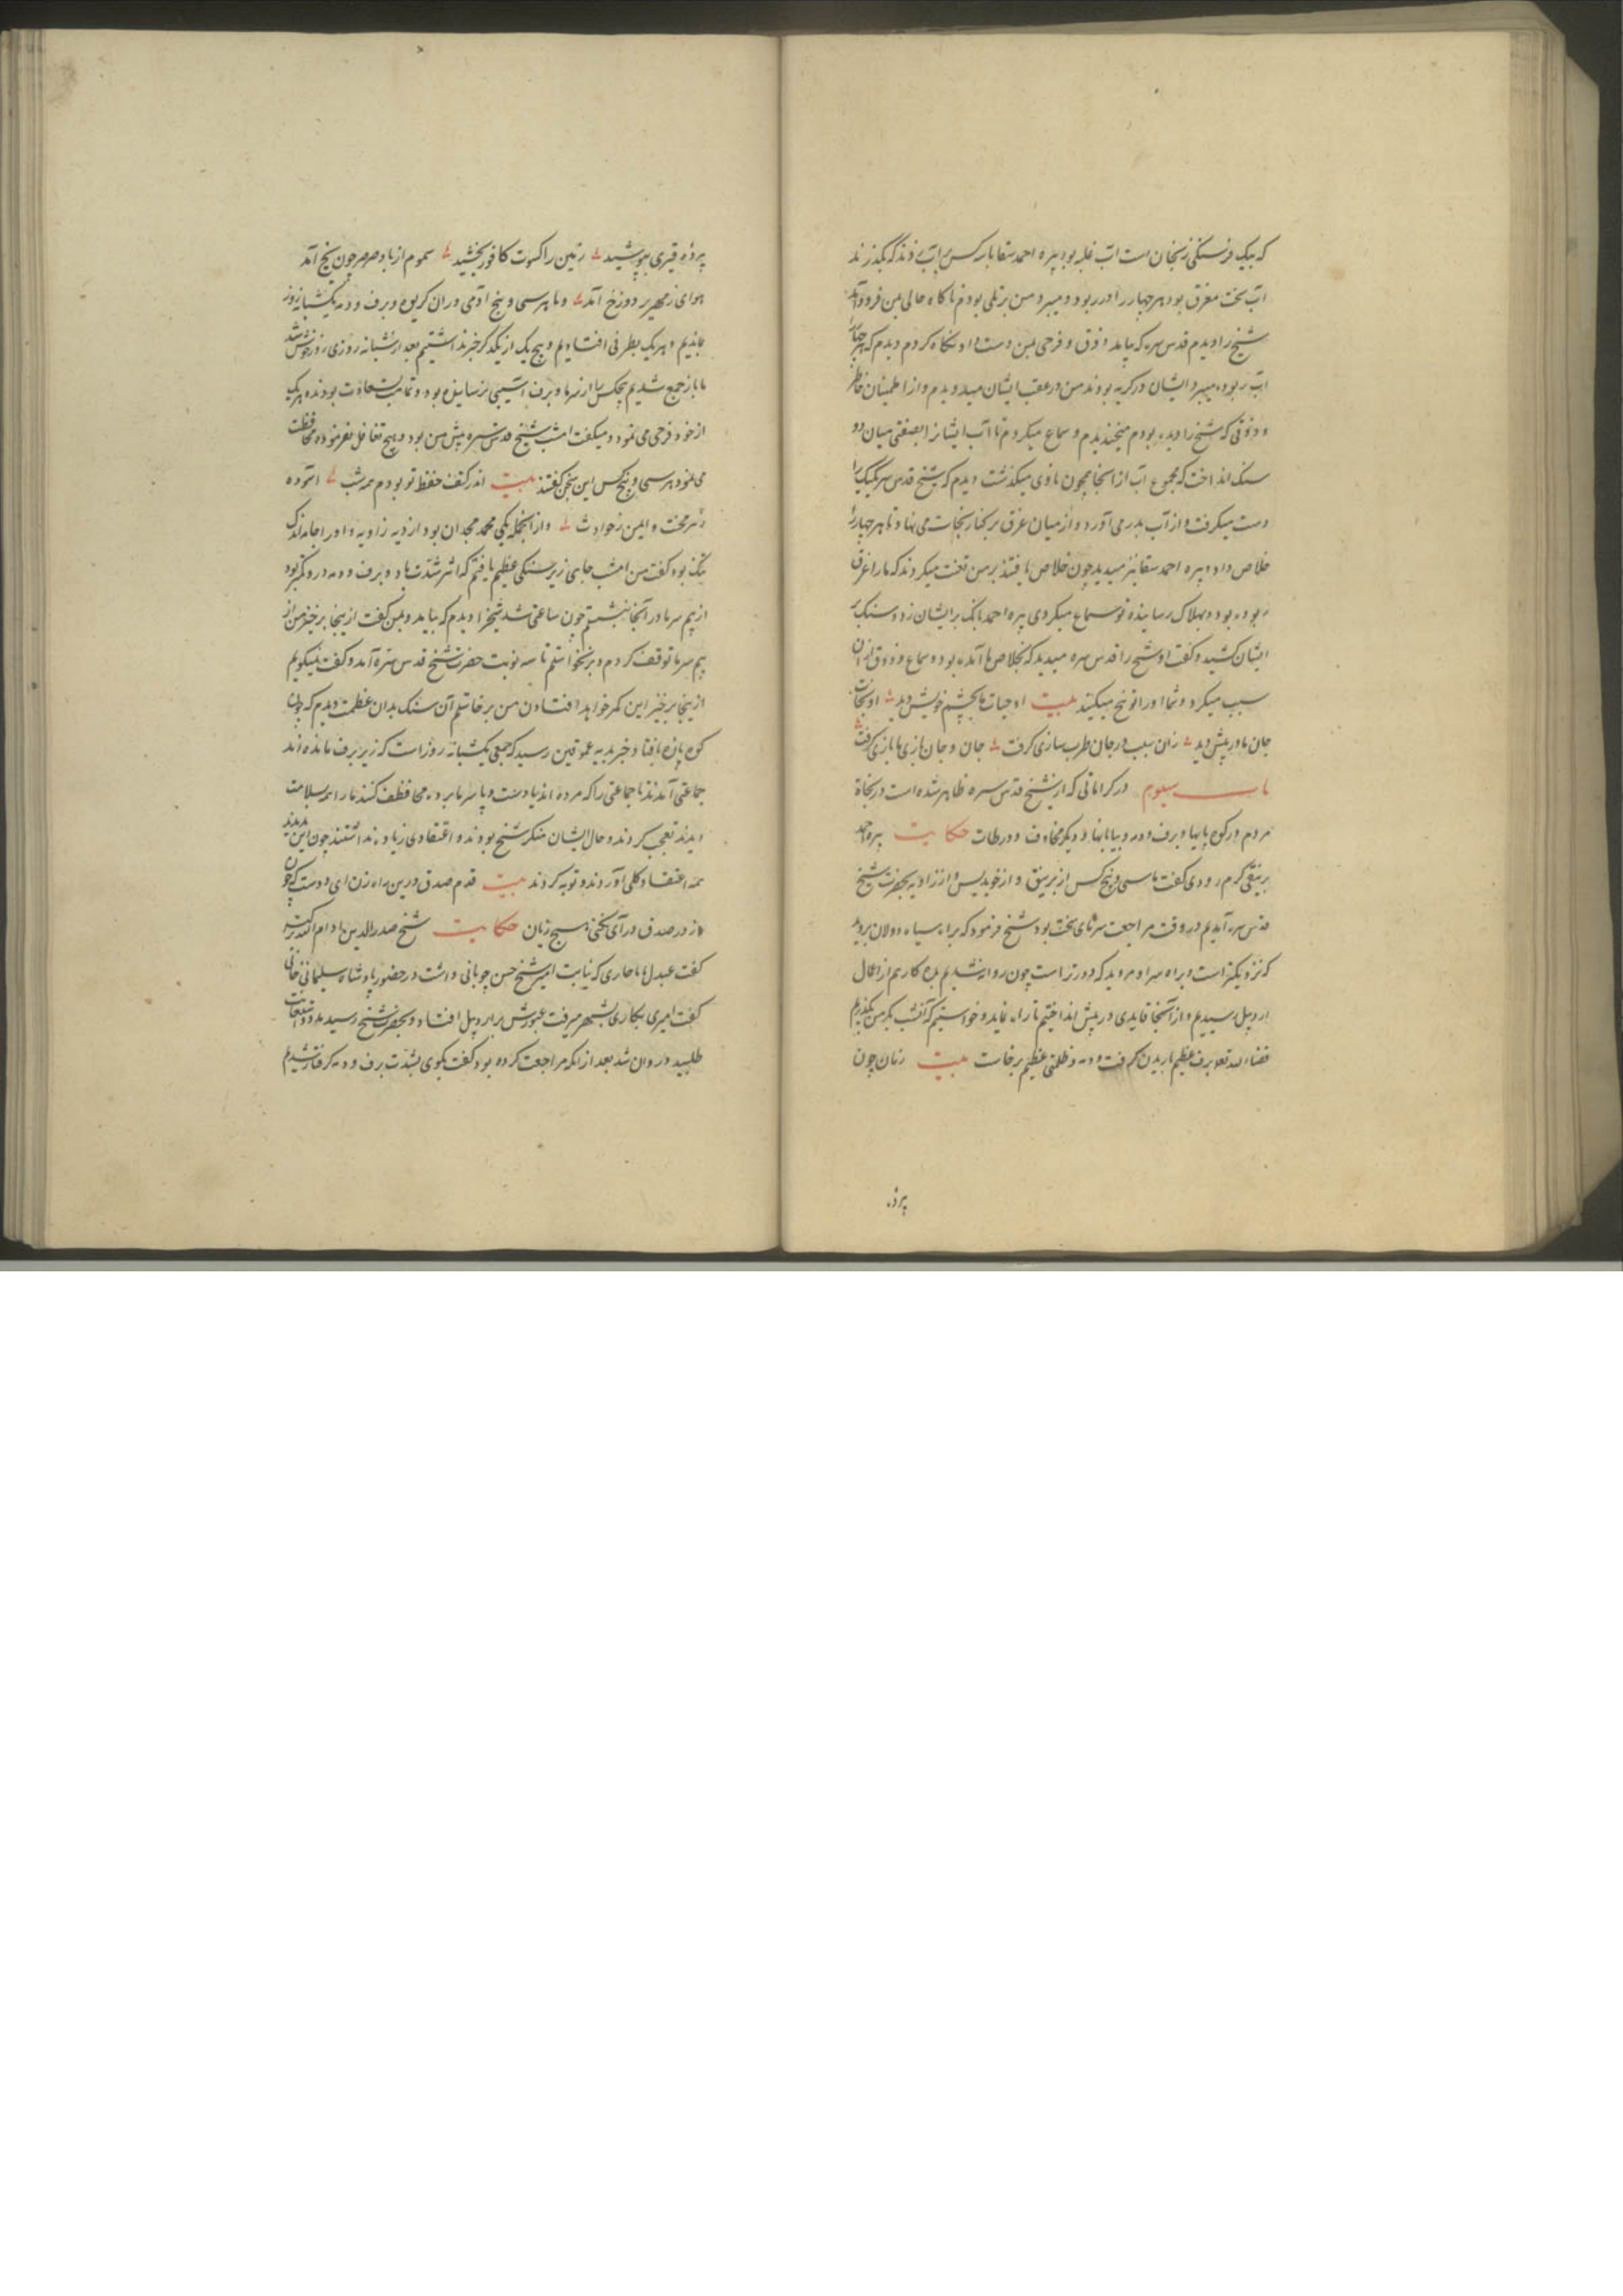 که بیک فرسنکی زنجانست آب غلبه بود پیره احمد سقا با سه کس بر آب زدند که بگذرند
آب سخت مغرق بود هر چهار را در ربود و میبرد من بر تلی بودم ناکاه حالی بمن فرود آمد
شیخ را دیدم قدس سره که بیامد و ذوق و فرحی بمن دست داد نکاه کردم دیدم که هر چهار را
آب ربوده میبرد ایشان در کریه بودند من در عقب ایشان میدویدم و از اطمینان خاطر
و ذوقی که شیخ را دیده بودم میخندیدم و سماع میکردم تا آب ایشانرا بصنعتی میان دو
سنک انداخت که مجموع آب از آنجا همچون ناوی میکذشت دیدم که شیخ قدس سره یکیک را
دست میکرفت و از آب بدر می آورد و از میان غرق بر کنار نجات می نهاد تا هر چهار را
خلاص داد و پیره احمد سقا نیز میدید چون خلاص یافتند بر من تعنت میکردند که ما را غرق
ربوده بود و بهلاک رسانیده تو سماع میکردی پیره احمد بانک بر ایشان زد و سنک بر
ایشان کشید و کفت او شیخ را قدس سره میدید که بخلاص ما آمده بود و سماع و ذوق از آن
سبب میکرد و شما او را توبیخ میکنید بیت او حیات ما بچشم خویش دید او نجات
جان ما در پیش دید زان سبب در جان طرب سازی کرفت جان و جان بازی ما بازی کرفت
باب سیوم در کراماتی که از شیخ قدس سره ظاهر شده است در نجاة
مردم در کوه پایها و برف و دمه و بیابانها و دیکر مخاوف و ورطات حکایت پیره احمد
برنیقی کرم رودی کفت با سی و پنج کس از برنیق و از خوبدیس و از زاویه بحضرت شیخ
قدس سره آمدیم در وقت مراجعت سرمای سخت بود شیخ فرمود که براه سیاه دولان مروید
که نزدیکتر است و براه سراو روید که دورتر است چون روانه شدیم بده کاریم از اعمال
اردبیل رسیدیم و از آنجا قایدی در پیش انداختیم تا راه نماید و خواستیم که آنشب بکرمن بگذریم
قضاء الله تعا برف عظیم باریدن کرفت و دمه و ظلمتی عظیم برخاست بیت زمان چون
پرده
پردهٔ قیری بپوشید زمین را کسوت کافور بخشید سموم از باد صرصر چون یخ آمد
هوای زمهریر دوزخ آمد و ما هر سی و پنج آدمی در آن کریوه و برف و دمه یکشبانه روز
بماندیم و هر یک بطرفی افتادیم و هیچ یک از یکدیکر خبر نداشتیم بعد از شبانه روزی روز خوش شد
ما باز جمع شدیم هیچکس را از سرما و برف آسیبی نرسانیده بود و تمامت بسعادت بودند هر یک
از خود فرحی می نمود و میکفت امشب شیخ قدس سره پیش من بود و هیچ تغافل نفرموده محافظت
می نمود هر سی و پنج کس این سخن کفتند بیت اندر کنف حفظ تو بودم همه شب آسوده
ز سر محنت و ایمن ز حوادث و از آنجمله یکی محمد مجدان بود از دیه زاویه و او را جامه اندک
تنک بود کفت من امشب جایی زیر سنکی عظیم یافتم که اثر شدت باد و برف و دمه درو کمتر بود
از بیم سرما در آنجا بنشستم چون ساعتی شد شیخ را دیدم که بیامد و بمن کفت از ینجا برخیز من از
بیم سرما توقف کردم و برنخواستم تا سه نوبت حضرت شیخ قدس سره آمد و کفت نمیکویم
از ینجا برخیز این کمر خواهد افتادن من برخاستم آن سنک بدان عظمت دیدم که چون
کوه پاره بافتاد و خبر بدیه عموقین رسید که جمعی یکشبانه روز است که زیر برف مانده اند
جماعتی آمدند تا جماعتی را که مرده اند یا دست و پا سرما برده محافظت کنند ما را همه بسلامت
دیدند تعجب کردند و حال ایشان منکر شیخ بودند و اعتقادی زیاده نداشتند چون این بدیدند
همه اعتقاد کلی آوردند و توبه کردند بیت قدم صدق درین راه زن ای دوست که چون
از در صدق در آی نکنی هیچ زیان حکایت شیخ صدرالدین ادام الله برکته
کفت عبدل باباحاری که نیابت امیر شیخ حسن چوبانی داشت در حضور پادشاه سلیمانی خانی
کفت امیری بکاری بشهر میرفت عبورش بر اردبیل افتاد و بحضرت شیخ رسید مدد و استعانت
طلبید و روان شد بعد از آنکه مراجعت کرده بود کفت بکوی بشدت برف و دمه کرفتار شدیم